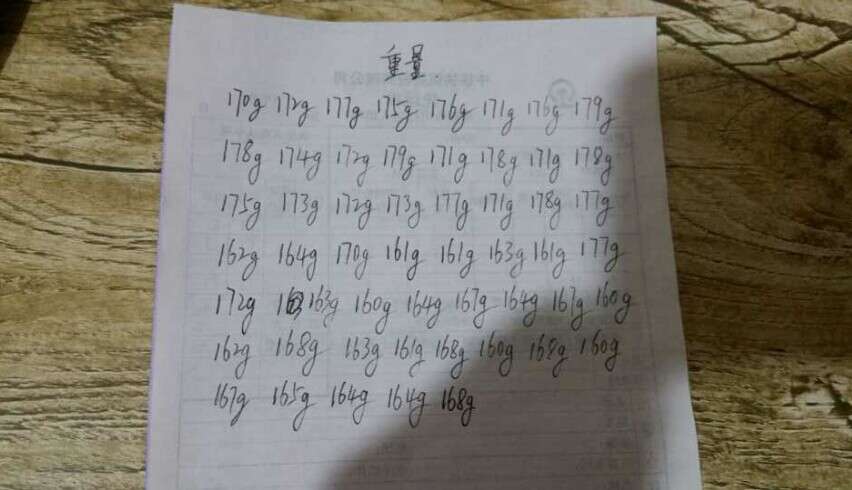 重量
170g 172g 177g 175g 176g 171g 176g 179g
178g 174g 172g 179g 171g 178g 171g 178g
175g 173g 172g 173g 177g 171g 178g 177g
162g 164g 170g 161g 161g 163g 161g 177g
172g 163g 160g 164g 167g 164g 167g 160g
162g 168g 163g 161g 168g 160g 168g 160g
167g 165g 164g 164g 168g